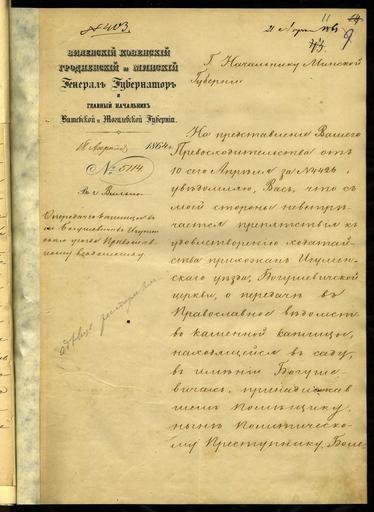 № 403.
21 Апреля
9
ВИЛЕНСКІЙ КОВЕНСКІЙ
ГРОДНЕНСКІЙ и МИНСКІЙ
Генералъ Губернаторъ
и
ГЛАВНЫЙ НАЧАЛЬНИКЪ
Витебской и Могилевской Губерній.
18 Апрѣля 1864 г.
№ 5114
Въ г. Вильно.
О передачѣ каплицы въ
им. Богушевичахъ Игумен
скаго уѣзда Православ
ному вѣдомству
Г. Начальнику Минской
Губерніи
На представленіе Вашего
Превосходительства отъ
10 сего Апрѣля за № 4426,
увѣдомляю Васъ, что съ
моей стороны невстрѣ
чается препятствія къ
удовлетворенію ходатай
ства прихожанъ Игумен
скаго уѣзда, Богушевичской
церкви, о передачѣ въ
Православное вѣдомст
во каменной каплицы,
находящейся въ саду,
въ имѣніи Богуше
вичахъ, принадлежав
шемъ помѣщику,
нынѣ политическо
му преступнику, Боле